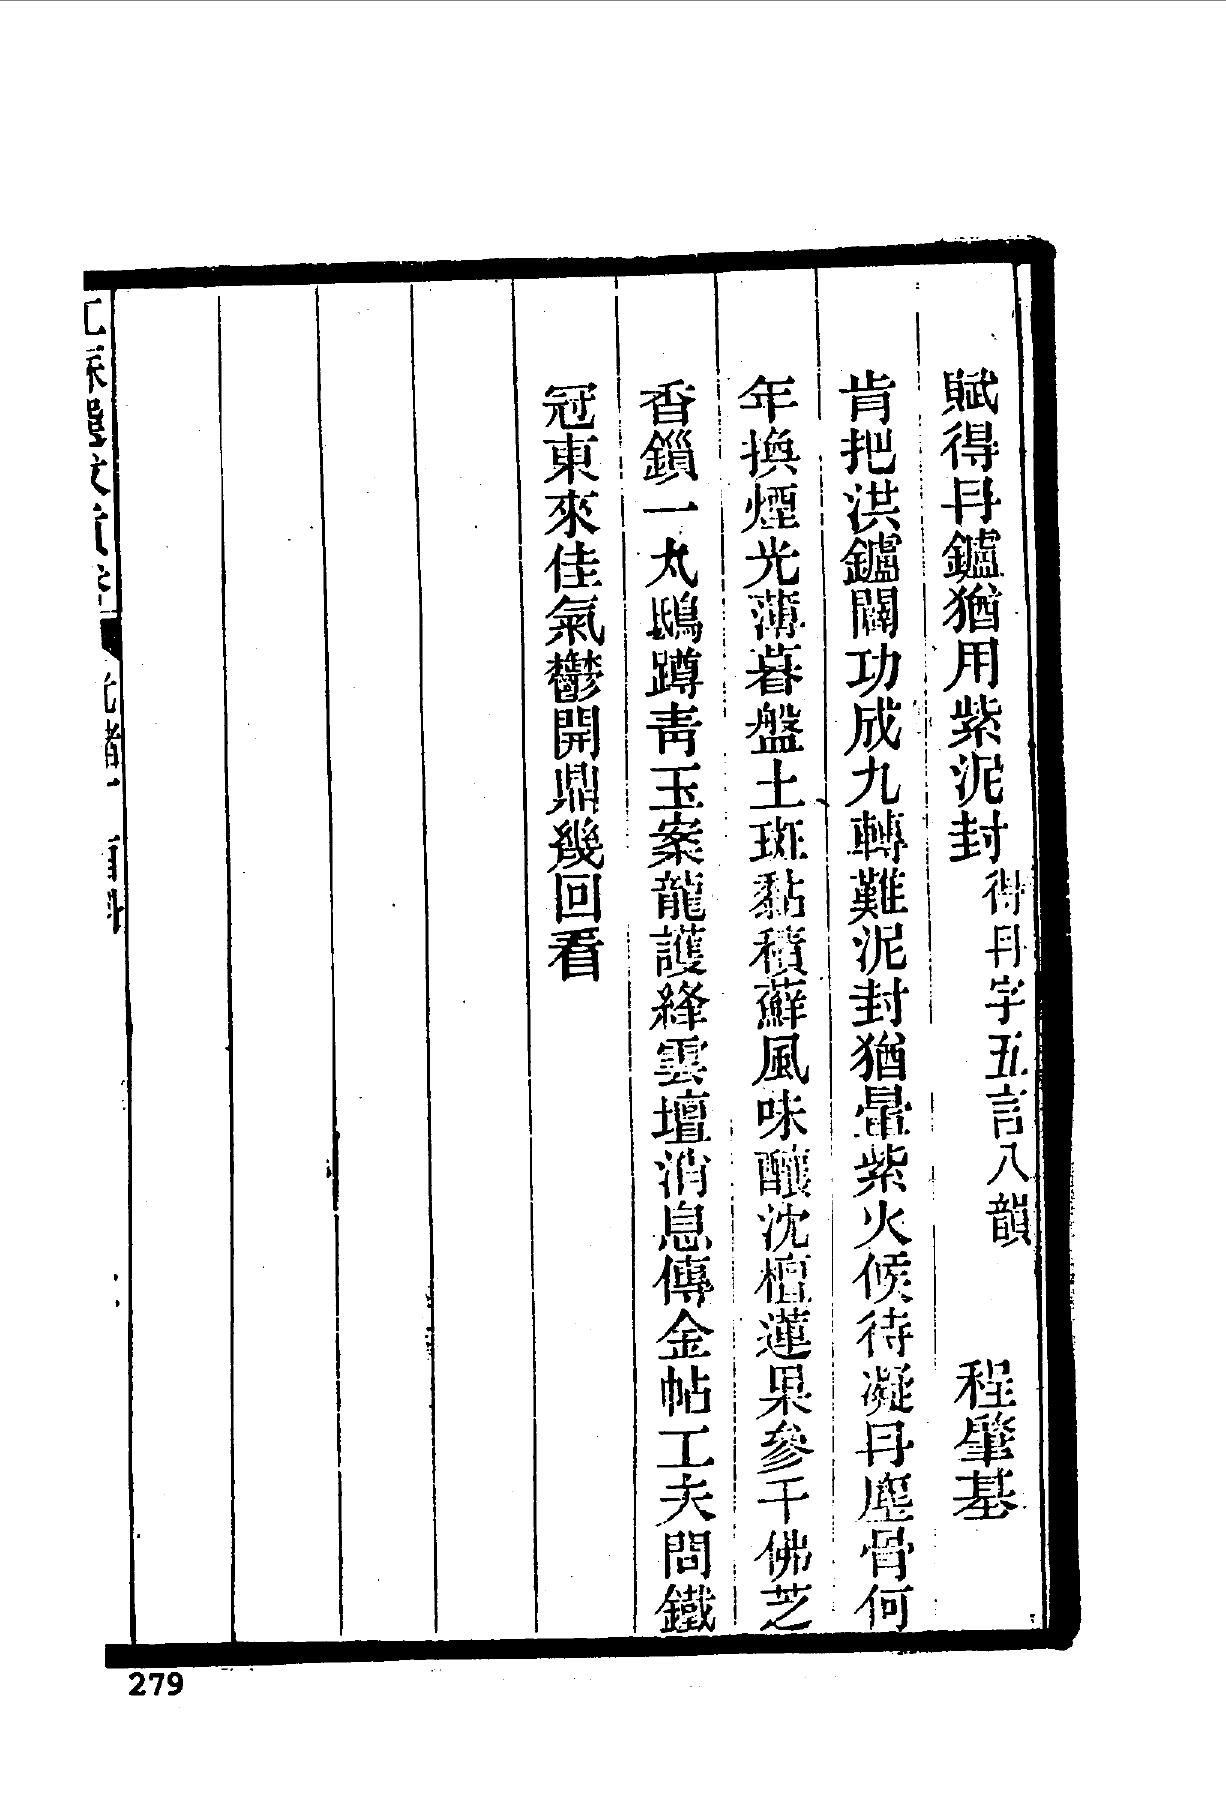 賦得丹鑪猶用紫泥封得丹字五言八韻 程肇基
肯把洪鑪闢功成九轉難泥封猶暈紫火候待凝丹塵骨何
年換煙光薄暮盤土斑黏積蘚風味釀沈檀蓮果參千佛芝
香鎻一丸鴟蹲靑玉案龍護絳雲壇消息傳金帖工夫問鐵
冠東來佳氣鬱開鼎幾回看
279